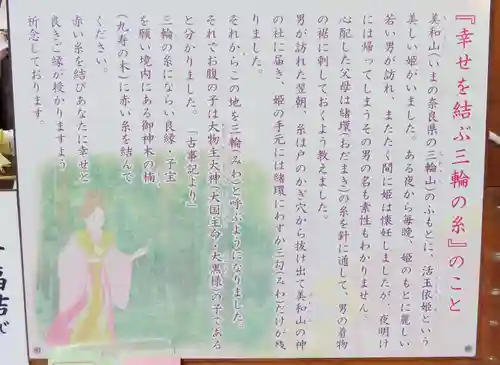 『幸せを結ぶ三輪の糸』のこと
美和山(いまの奈良県の三輪山)のふもとに、活玉依姫という
美しい姫がいました。ある夜から毎晩、姫のもとに麗しい
若い男が訪れ、またたく間に姫は懐妊しましたが、夜明け
には帰ってしまうその男の名も素性もわかりません。
心配した父母は緒環(おだまき)の糸を針に通して、男の着物
の裾に刺しておくよう教えました。
男が訪れた翌朝、糸は戸のかぎ穴から抜け出て美和山の神
の社に届き、姫の手元には緒環にわずか三勾(みわ)だけが残
りました。
それからこの地を三輪(みわ)と呼ぶようになりました。
それでお腹の子は大物主大神(大国主命・大黒様)の子である
と分かりました。「古事記より」
三輪の糸にならい良縁・子宝
を願い境内にある御神木の楠
(九寿の木)に赤い糸を結んで
ください。
赤い糸を結びあなたに幸せと
良きご縁が授かりますよう
祈念しております。